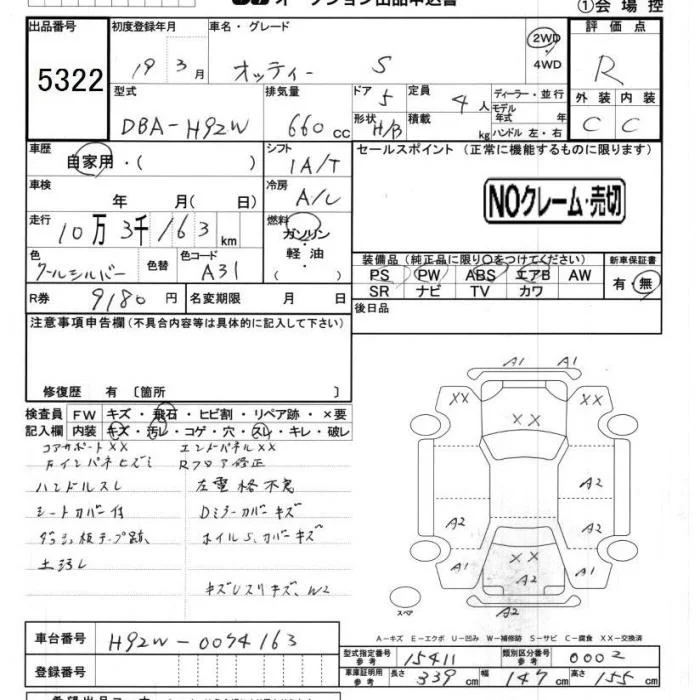 オークション出品申込書
①会場控
出品番号 初度登録年月 車名・グレード 評価点
5322 19 3月 オッティー S 2WD・4WD R
型式 排気量 ドア 5 定員 4人 ディーラー・並行 外装 内装
モデル年式 年
DBA-H92W 660cc 形状 H/B 積載 kg ハンドル 左・右 C C
車歴 自家用・( ) シフト 1A/T セールスポイント (正常に機能するものに限ります)
車検 年 月( 日) 冷房 A/C
NOクレーム・売切
走行 10万3千163km 燃料 ガソリン・軽油・( )
色 クールシルバー 色替 色コード A31
装備品 (純正品に限り○をつけてください) 新車保証書
PS PW ABS エアB AW 有・無
SR ナビ TV カワ
R券 9180円 名変期限 月 日 後日品
注意事項申告欄(不具合内容等は具体的に記入して下さい)
修復歴 有 〔箇所 〕
検査員 FW キズ・飛石・ヒビ割・リペア跡・×要
記入欄 内装 キズ・汚レ・コゲ・穴・スレ・キレ・破レ
コアサポートXX エンドパネルXX
Rフロア修正
ハンドルスレ 左電格不良
シートカバー付 Dミラーカバーキズ
ダッシュ板テープ跡 ホイルS、カバーキズ
キズUスリキズ、W2
A1 A1
XX XX XX
A2
A2 A2
A1 XX A2 A1
A2
スペア
A-キズ E-エクボ U-凹み W-補修跡 S-サビ C-腐食 XX-交換済
車台番号 H92W-0074163
型式指定番号 参考 15411 類別区分番号 参考 0002
登録番号 車庫証明用 参考 長さ 339cm 幅 147cm 高さ 155cm